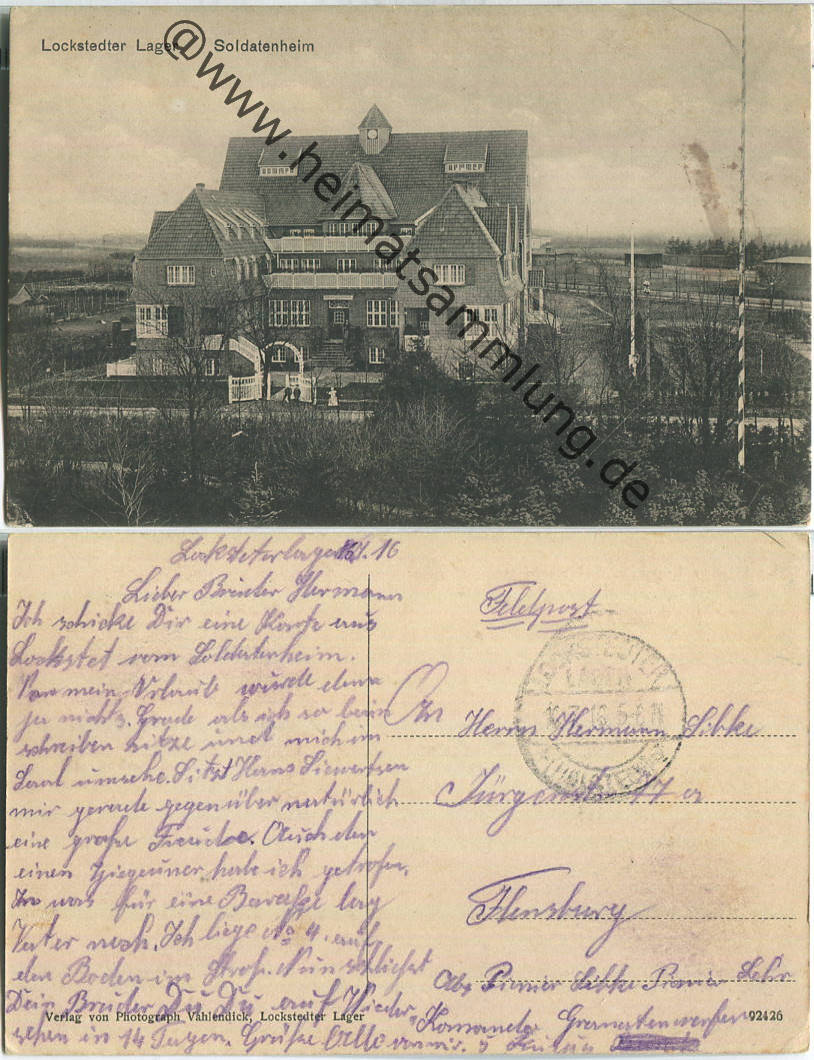 Lockstedter Lager Soldatenheim
@www.heimatsammlung.de
Locksteterlager 16
Lieber Bruder Hermann
Ich schicke Dir eine Karte aus
Lockstet vom Soldatenheim.
mein Urlaub wurde denn
ja nichts. Grade als ich so beim
schreiben sitze und mich im
Saal umsehe. Sitzt Hans Siewertsen
mir gerade gegenüber natürlich
eine große Freude. Auch den
einen habe ich getrofen.
In was für eine Baracke lag
Vater noch. Ich liege No 4. auf
den Boden im Stroh. Nun schliest
Dein Bruder auf Wieder
sehen in 14 Tagen. Grüße Alle von mir.
Feldpost
LOCKSTEDTER
LAGER
(HOLSTEIN)
An
Herrn Hermann Sibke
Jürgenst. 77a
Flensburg
Abs Pionier Sibke Pionier Lehr
Komando Granatenwerfer
Verlag von Photograph Vahlendick, Lockstedter Lager
92426